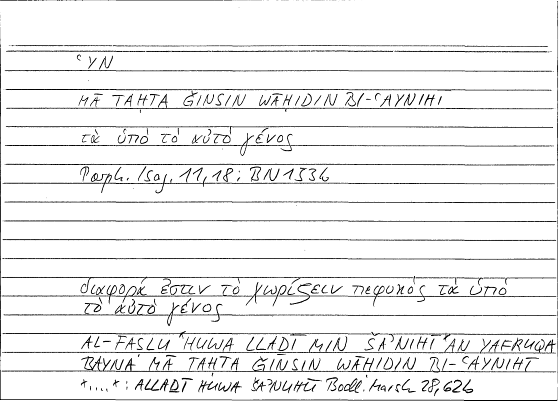 ʿYN
MĀ TAḤTA ǦINSIN WĀḤIDIN BI-ʿAYNIHĪ
τὰ ὑπὸ τὸ αὐτὸ γένος
Porph. Isag. 11,18; BN 133b
διαφορά ἐστιν τὸ χωρίζειν πεφυκὸς τὰ ὑπὸ
τὸ αὐτὸ γένος
AL-FAṢLU *HUWA LLADĪ MIN ŠAʾNIHĪ *AN YAFRUQA
BAYNA MĀ TAḤTA ǦINSIN WĀḤIDIN BI-ʿAYNIHĪ
*....*: ALLADĪ HUWA ŠAʾNUHŪ Bodl. Marsh 28,62b